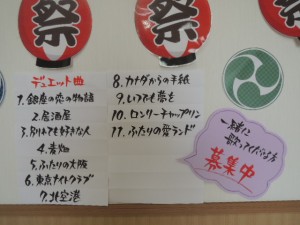 祭
祭
祭
デュエット曲
1. 銀座の恋の物語
2. 居酒屋
3. 別れても好きな人
4. 麦畑
5. ふたりの大阪
6. 東京ナイトクラブ
7. 北空港
8. カナダからの手紙
9. いつでも夢を
10. ロンリーチャップリン
11. ふたりの愛ランド
一緒に
歌ってくださる方
募集中